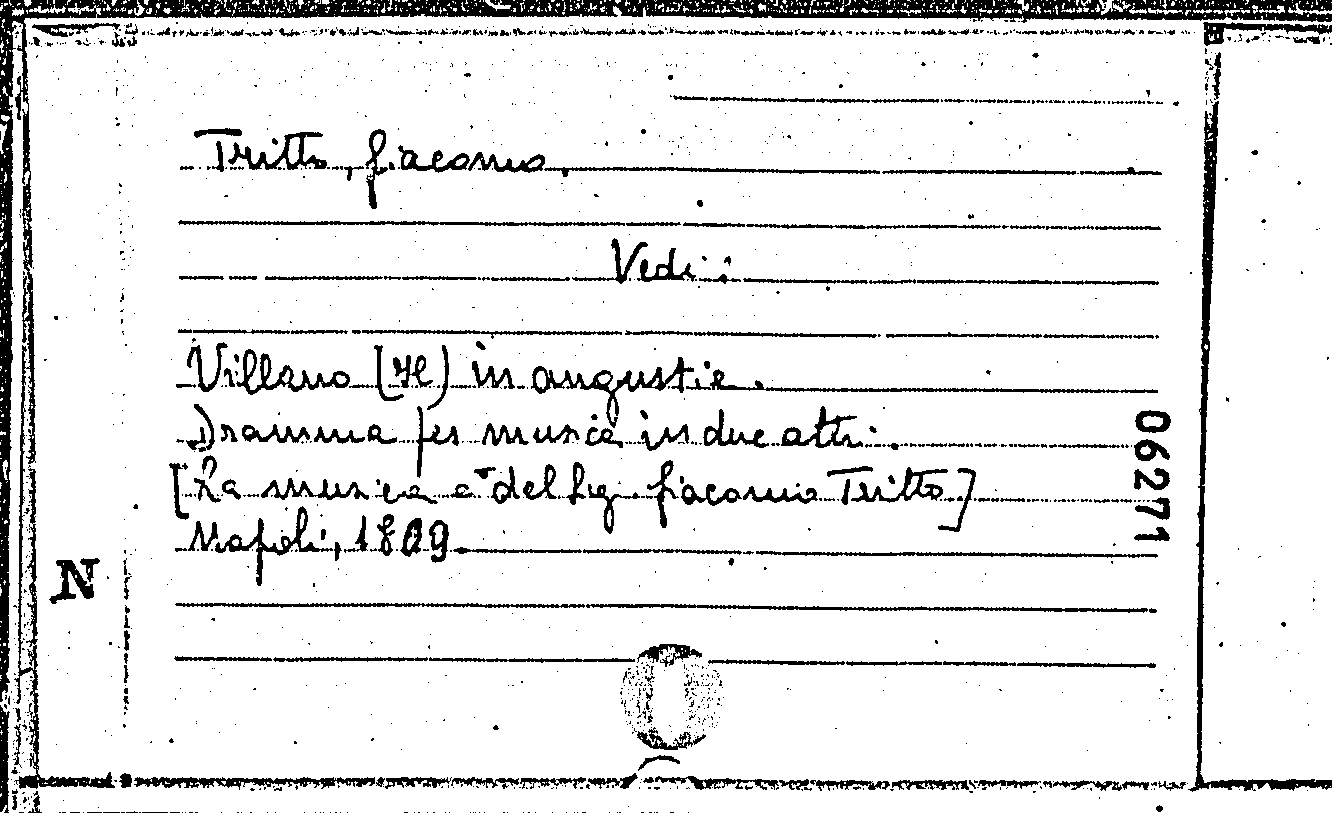 Tritto, Giacomo.
Vedi:
Villano (Il) in angustie.
Dramma per musica in due atti.
[La musica è del Sig. Giacomo Tritto]
Napoli, 1809.
N
06271